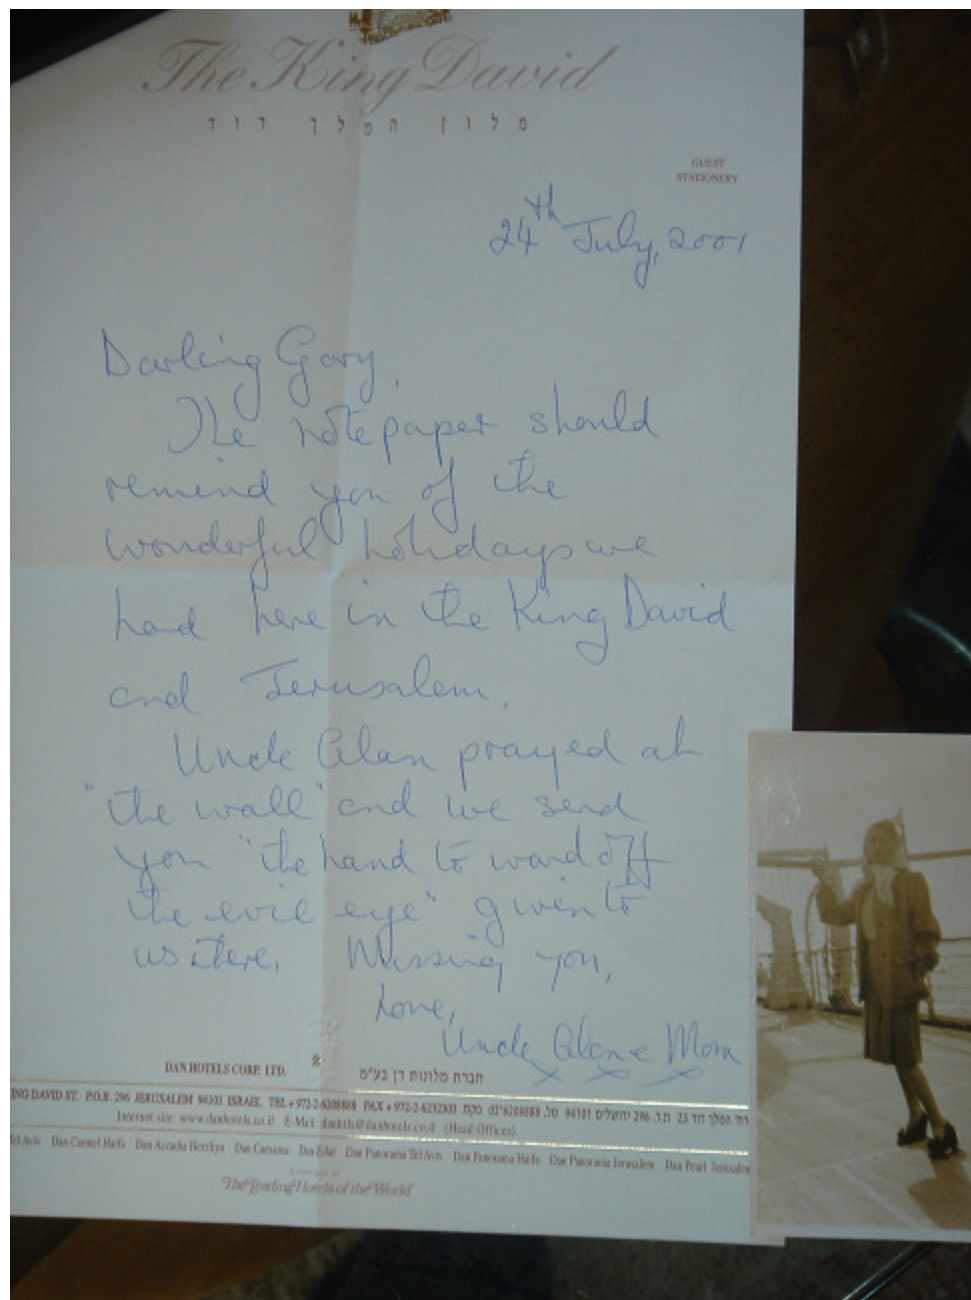 The King David
מלון המלך דוד
GUEST
STATIONERY
24th July, 2001
Darling Gary,
The notepaper should
remind you of the
wonderful holidays we
had here in the King David
and Jerusalem.
Uncle Alan prayed at
"the wall" and we send
you "the hand to ward off
the evil eye" given to
us there. Missing you,
Love,
Uncle Alan & Mom
x x x
DAN HOTELS CORP. LTD. חברת מלונות דן בע"מ
KING DAVID ST. P.O.B. 296 JERUSALEM 94101 ISRAEL. TEL +972-2-6208888 FAX +972-2-6232303 פקס. 02-6208888 טל. 94101 רח' המלך דוד 23 ת.ד. 296 ירושלים
Internet site: www.danhotels.co.il E-Mail: danhtls@danhotels.co.il (Head Offices).
Tel Aviv Dan Carmel Haifa Dan Accadia Herzliya Dan Caesarea Dan Eilat Dan Panorama Tel Aviv Dan Panorama Haifa Dan Panorama Jerusalem Dan Pearl Jerusalem
The Leading Hotels of the World